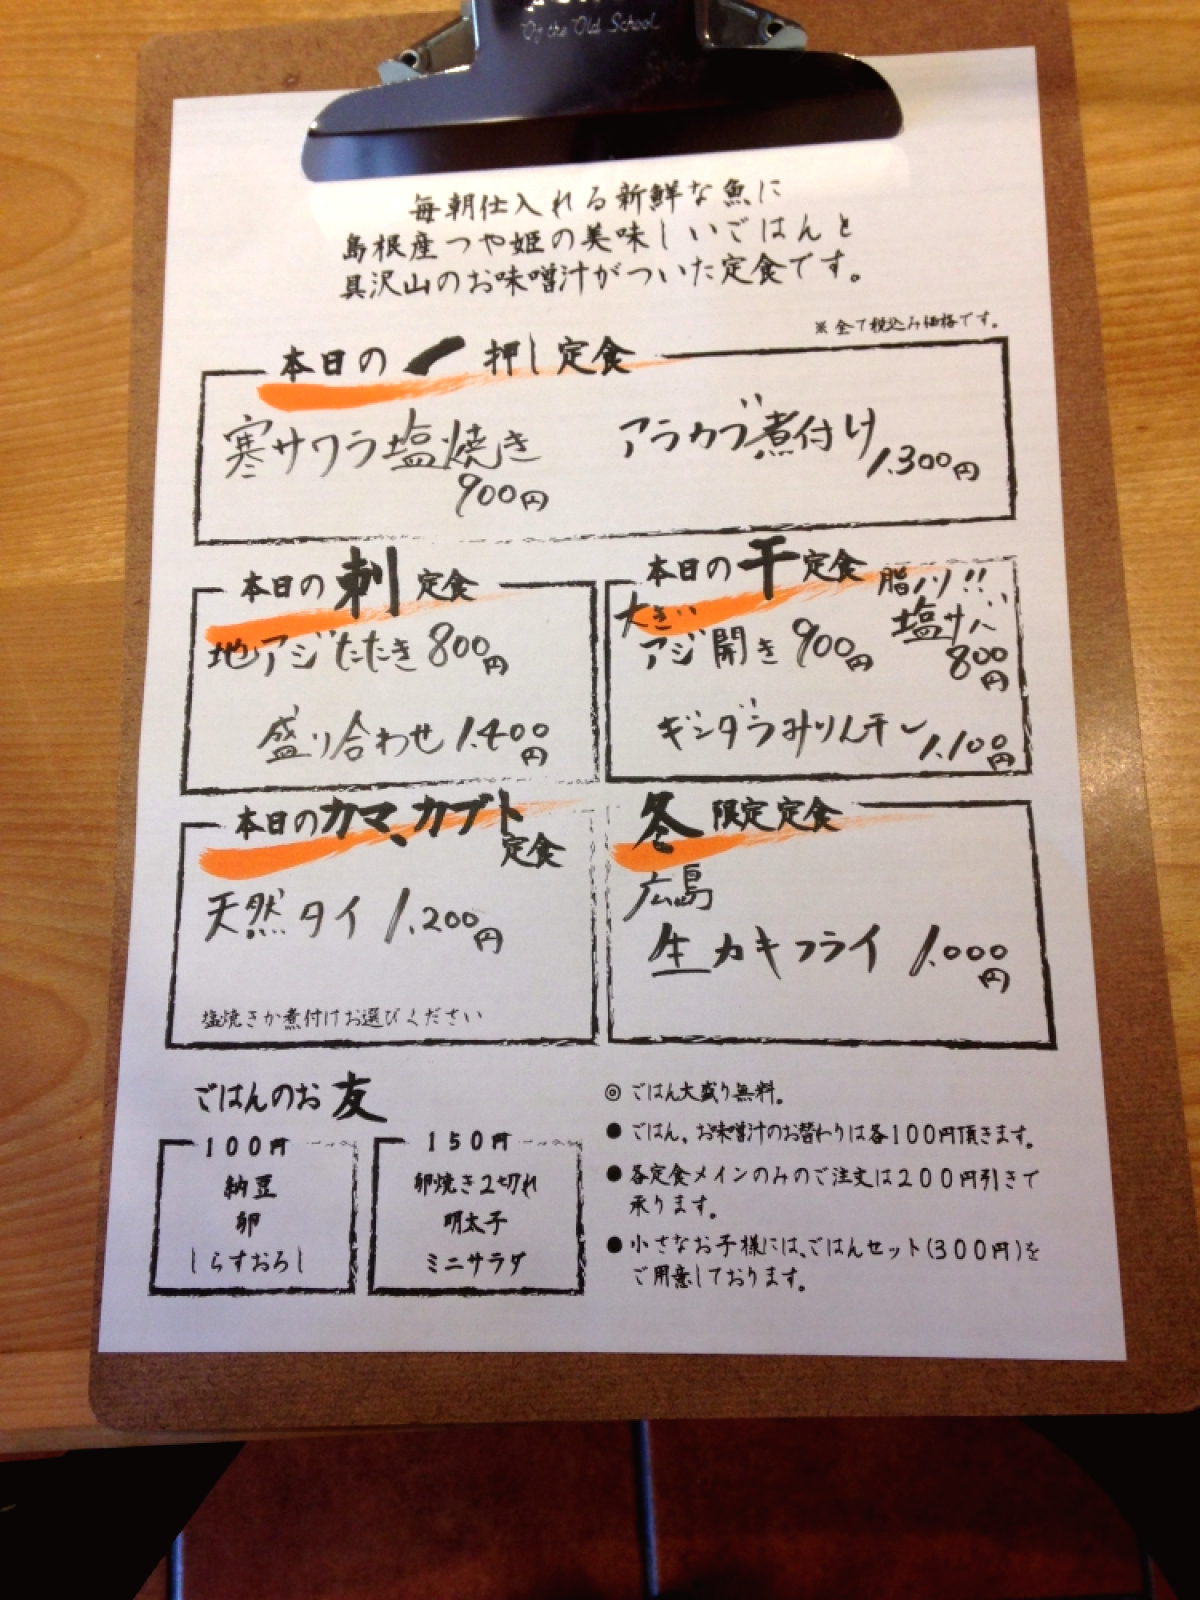 Of the Old School
毎朝仕入れる新鮮な魚に
島根産つや姫の美味しいごはんと
具沢山のお味噌汁がついた定食です。
※全て税込み価格です。
本日の一押し定食
寒サワラ塩焼き
900円
アラカブ煮付け
1.300円
本日の刺定食
地アジたたき 800円
盛り合わせ 1.400円
本日の干定食
大きい
アジ開き 900円
脂ノリ!!
塩サバ
800円
ギンダラみりん干し
1.100円
本日のカマ、カブト
定食
天然タイ 1.200円
塩焼きか煮付けお選びください
冬限定定食
広島
生カキフライ 1.000円
ごはんのお友
100円
納豆
卵
しらすおろし
150円
卵焼き2切れ
明太子
ミニサラダ
◎ ごはん大盛り無料。
● ごはん、お味噌汁のお替わりは各100円頂きます。
● 各定食メインのみのご注文は200円引きで
承ります。
● 小さなお子様には、ごはんセット(300円)を
ご用意しております。